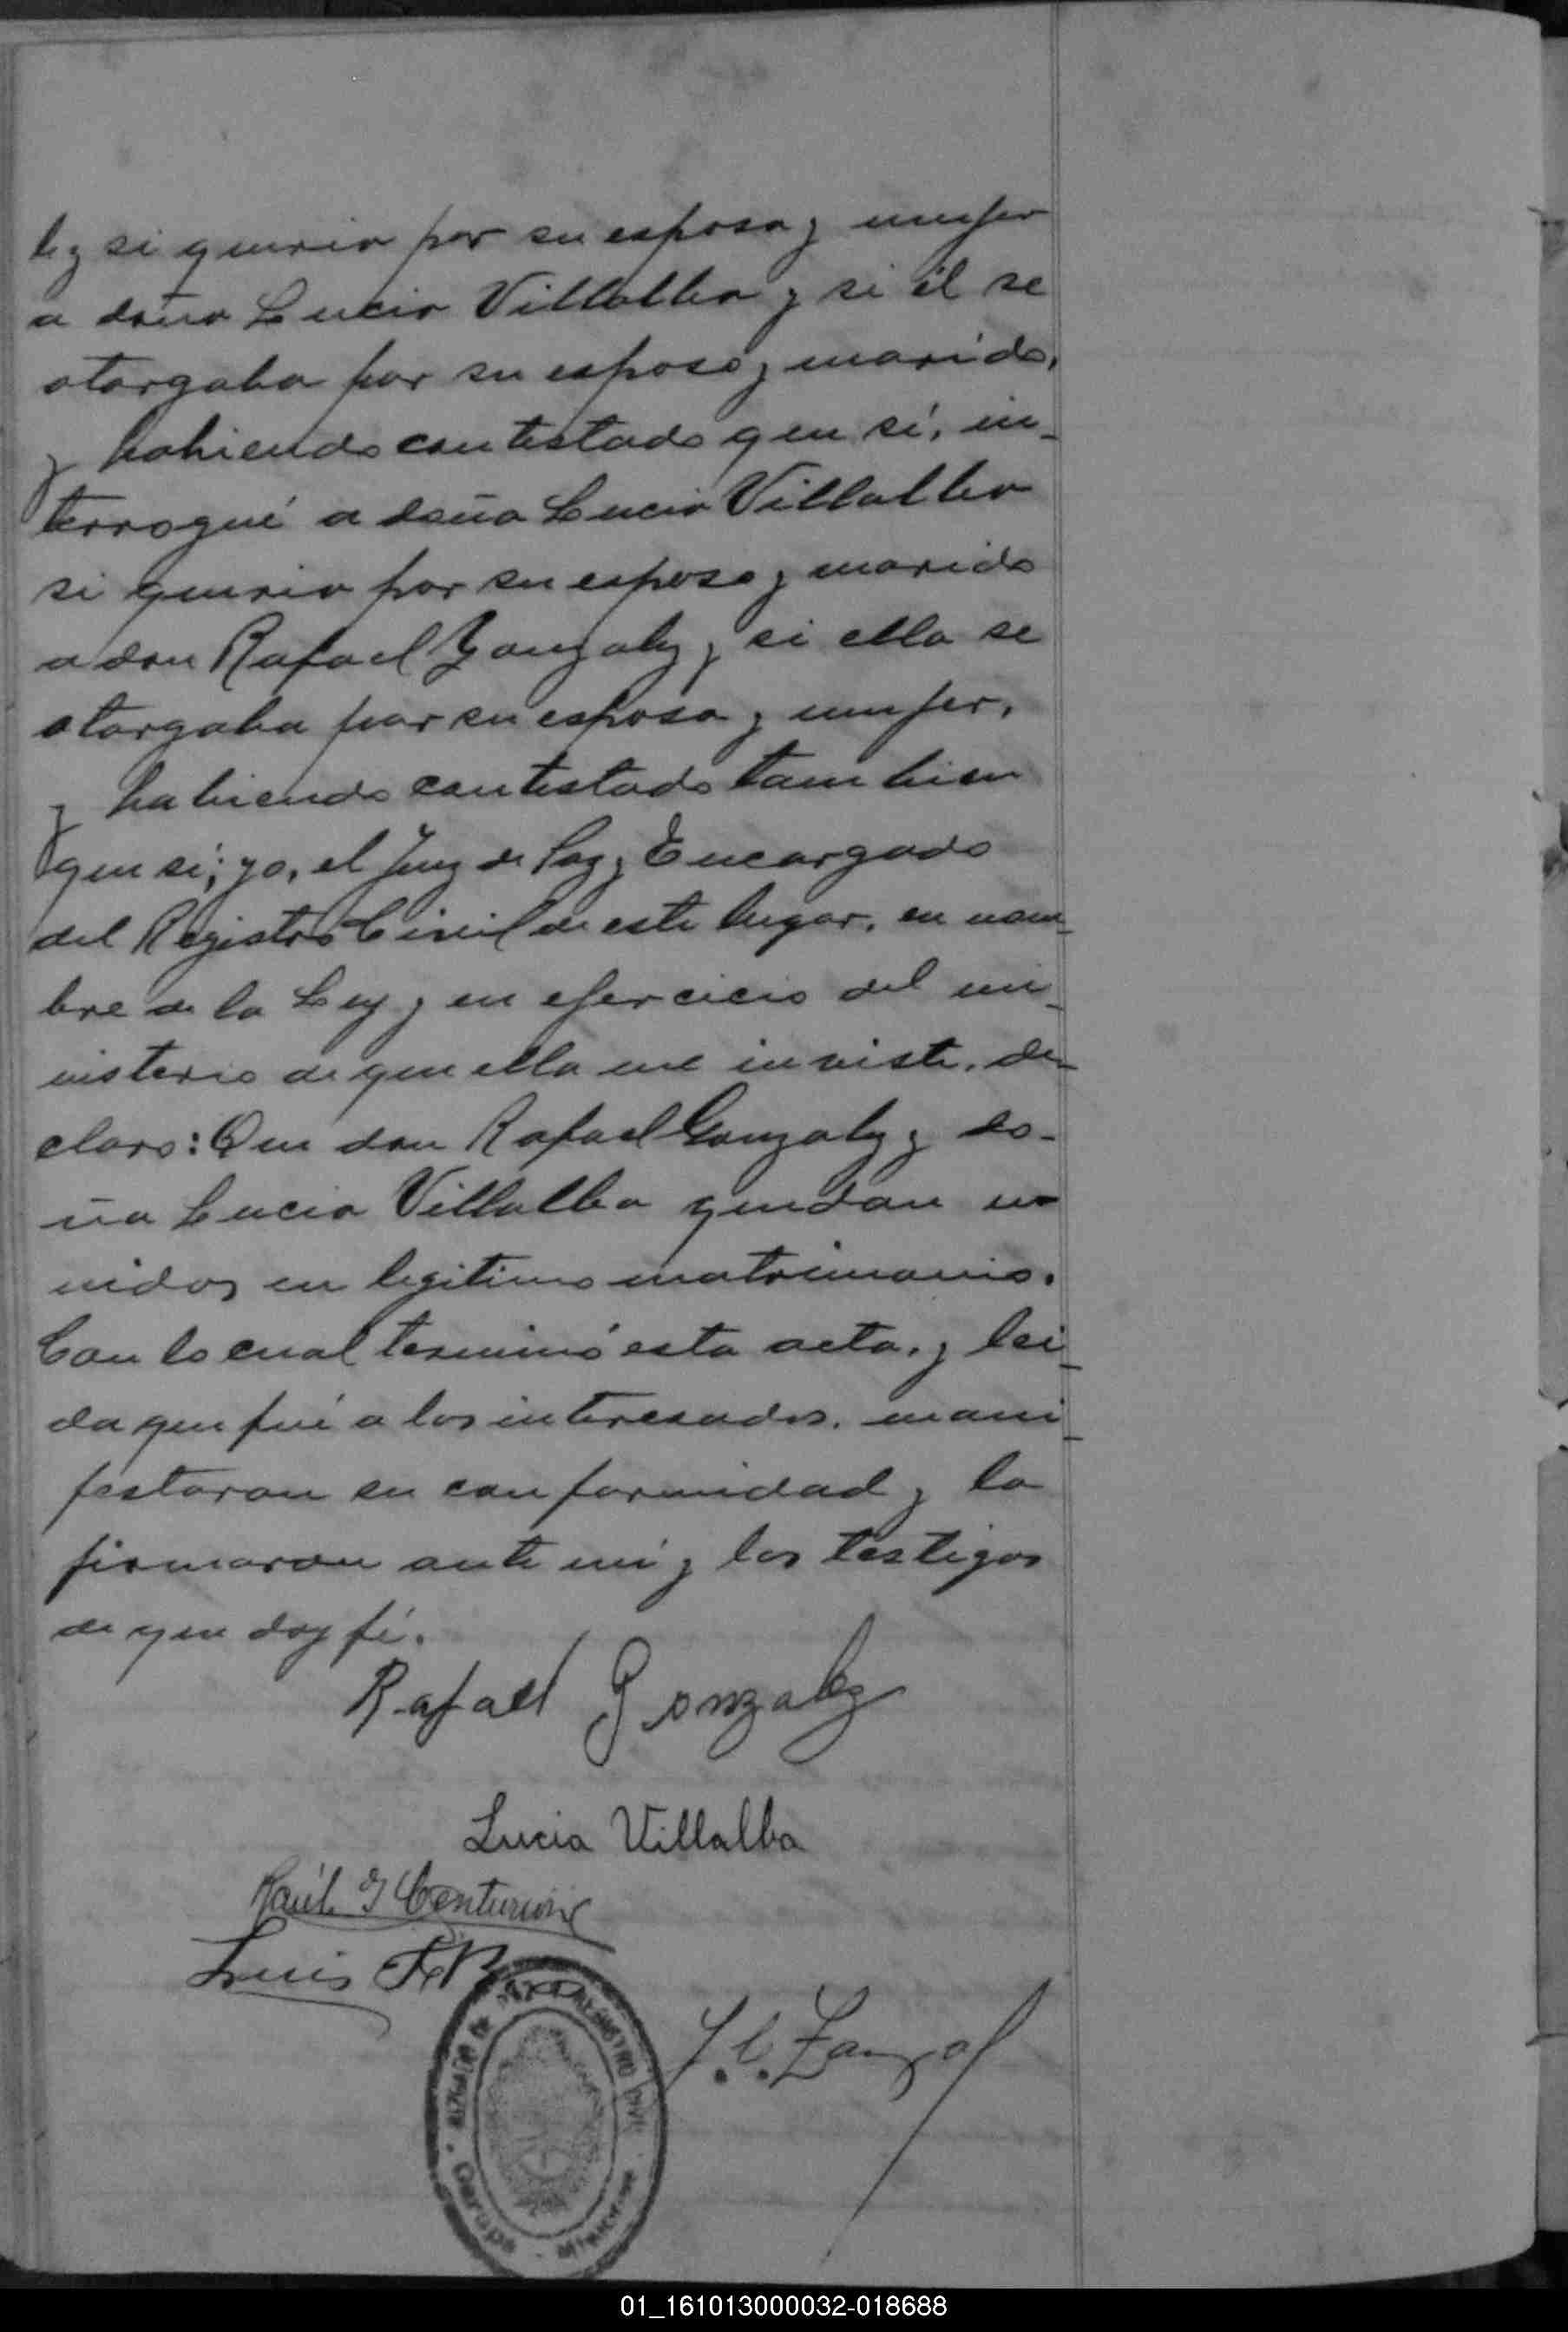 lez si queria por su esposa y mujer
a doña Lucia Villalba y si él se
otorgaba por su esposo y marido,
y habiendo contestado que sí, in-
terrogué a doña Lucia Villalba
si queria por su esposo y marido
a don Rafael Gonzalez y si ella se
otorgaba por su esposa y mujer,
y habiendo contestado tambien
que sí; yo, el Juez de Paz y Encargado
del Registro Civil de este lugar, en nom-
bre de la Ley y en ejercicio del mi-
nisterio de que ella me inviste, de-
claro: Que don Rafael Gonzalez y do-
ña Lucia Villalba quedan u-
nidos en legitimo matrimonio.
Con lo cual terminó esta acta, y lei-
da que fué a los interesados, mani-
festaron su conformidad y la
firmaron ante mí y los testigos
de que doy fé.
Rafael Gonzalez
Lucia Villalba
Raúl G Centurión
Luis
JUZGADO DE PAZ Y REGISTRO CIVIL
Garupá - Misiones
01_161013000032-018688